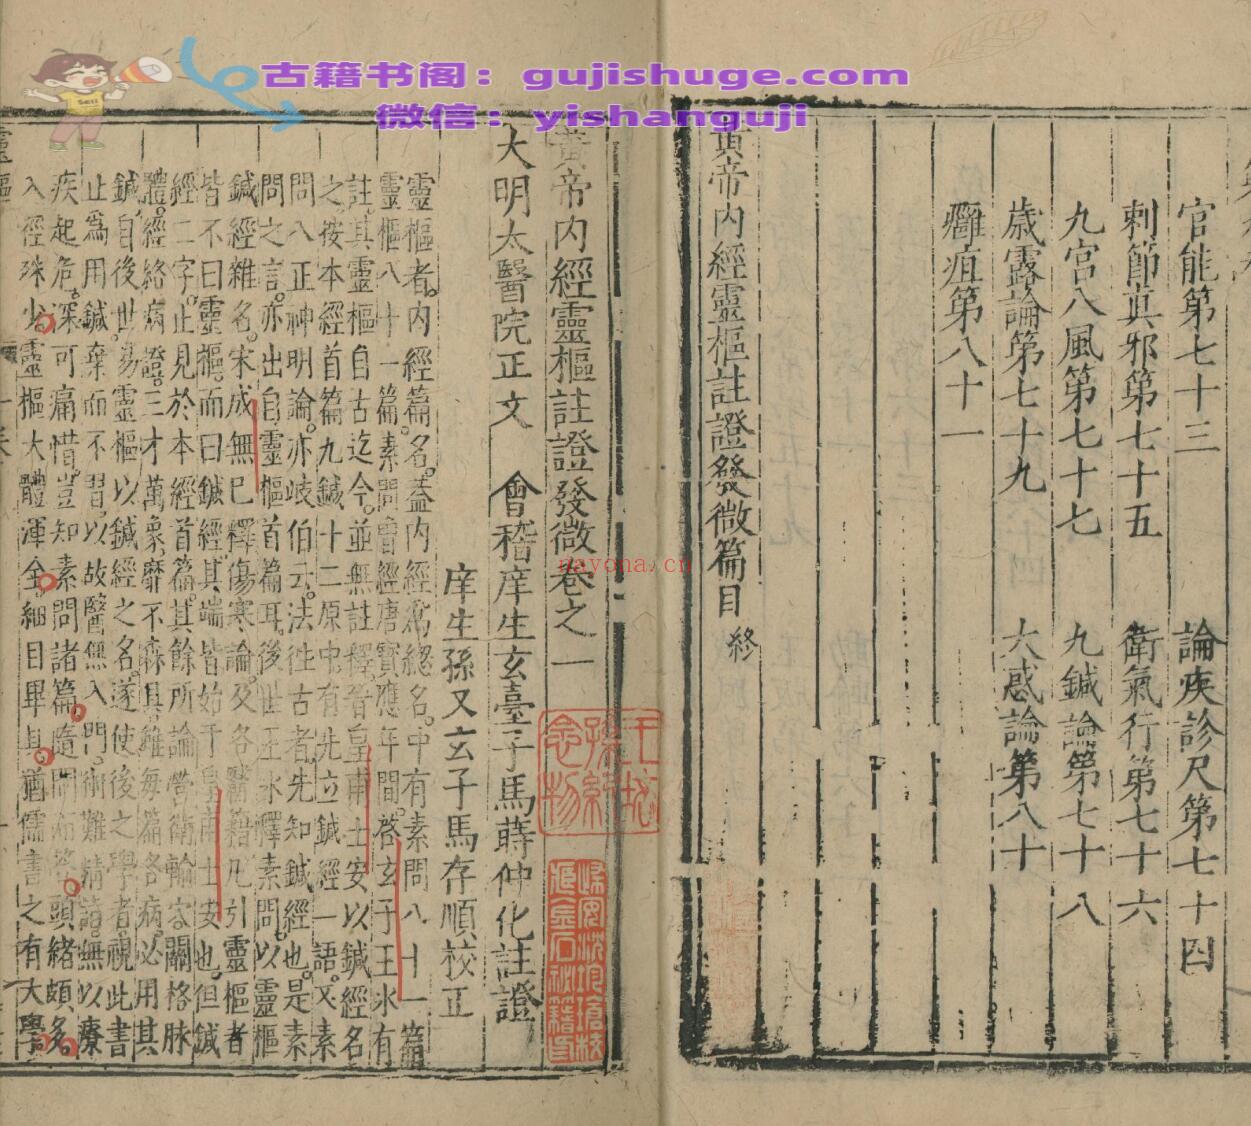 古籍书阁：gujishuge.com
微信：yishanguji
官能第七十三　論疾診尺第七十四
刺節真邪第七十五　衛氣行第七十六
九宮八風第七十七　九鍼論第七十八
歲露論第七十九　大惑論第八十
癰疽第八十一
黃帝內經靈樞註證發微篇目　終
黃帝內經靈樞註證發微卷之一
大明太醫院正文　會稽庠生玄臺子馬蒔仲化註證
庠生孫又玄子馬存順校正
靈樞者。內經篇名。蓋內經爲總名。中有素問八十一篇
靈樞八十一篇。素問曾經唐寶應年間。啓玄子王氷有
註。其靈樞自古迄今。並無註釋。晉皇甫士安以鍼經名
之。按本經首篇九鍼十二原中有先立鍼經一語。又素
問八正神明論。亦岐伯云。法往古者。先知鍼經也。是素
問之言。亦出自靈樞首篇耳。後世王氷釋素問。以靈樞
鍼經雜名。宋成無已釋傷寒論。及各醫籍凡引靈樞者
皆不曰靈樞。而曰鍼經。其端皆始于皇甫士安也。但鍼
經二字。止見於本經首篇。其餘所論營衛輸穴關格脉
體。經絡病證。三才萬象。靡不森具。雖每篇各病。必用其
鍼。自後世易靈樞以鍼經之名。遂使後之學者。視此書
止爲用鍼。棄而不習。以故醫無入門。術難精詣。無以療
疾起危。深可痛惜。豈知素問諸篇。隨問而答。頭緒頗多。
入徑殊少。靈樞大體渾全。細目畢具。猶儒書之有大學
nayona.cn